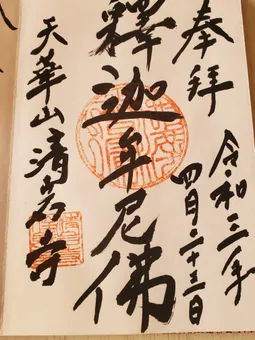 奉拜
令和三年
四月二十三日
釋迦牟尼佛
天華山清岩寺